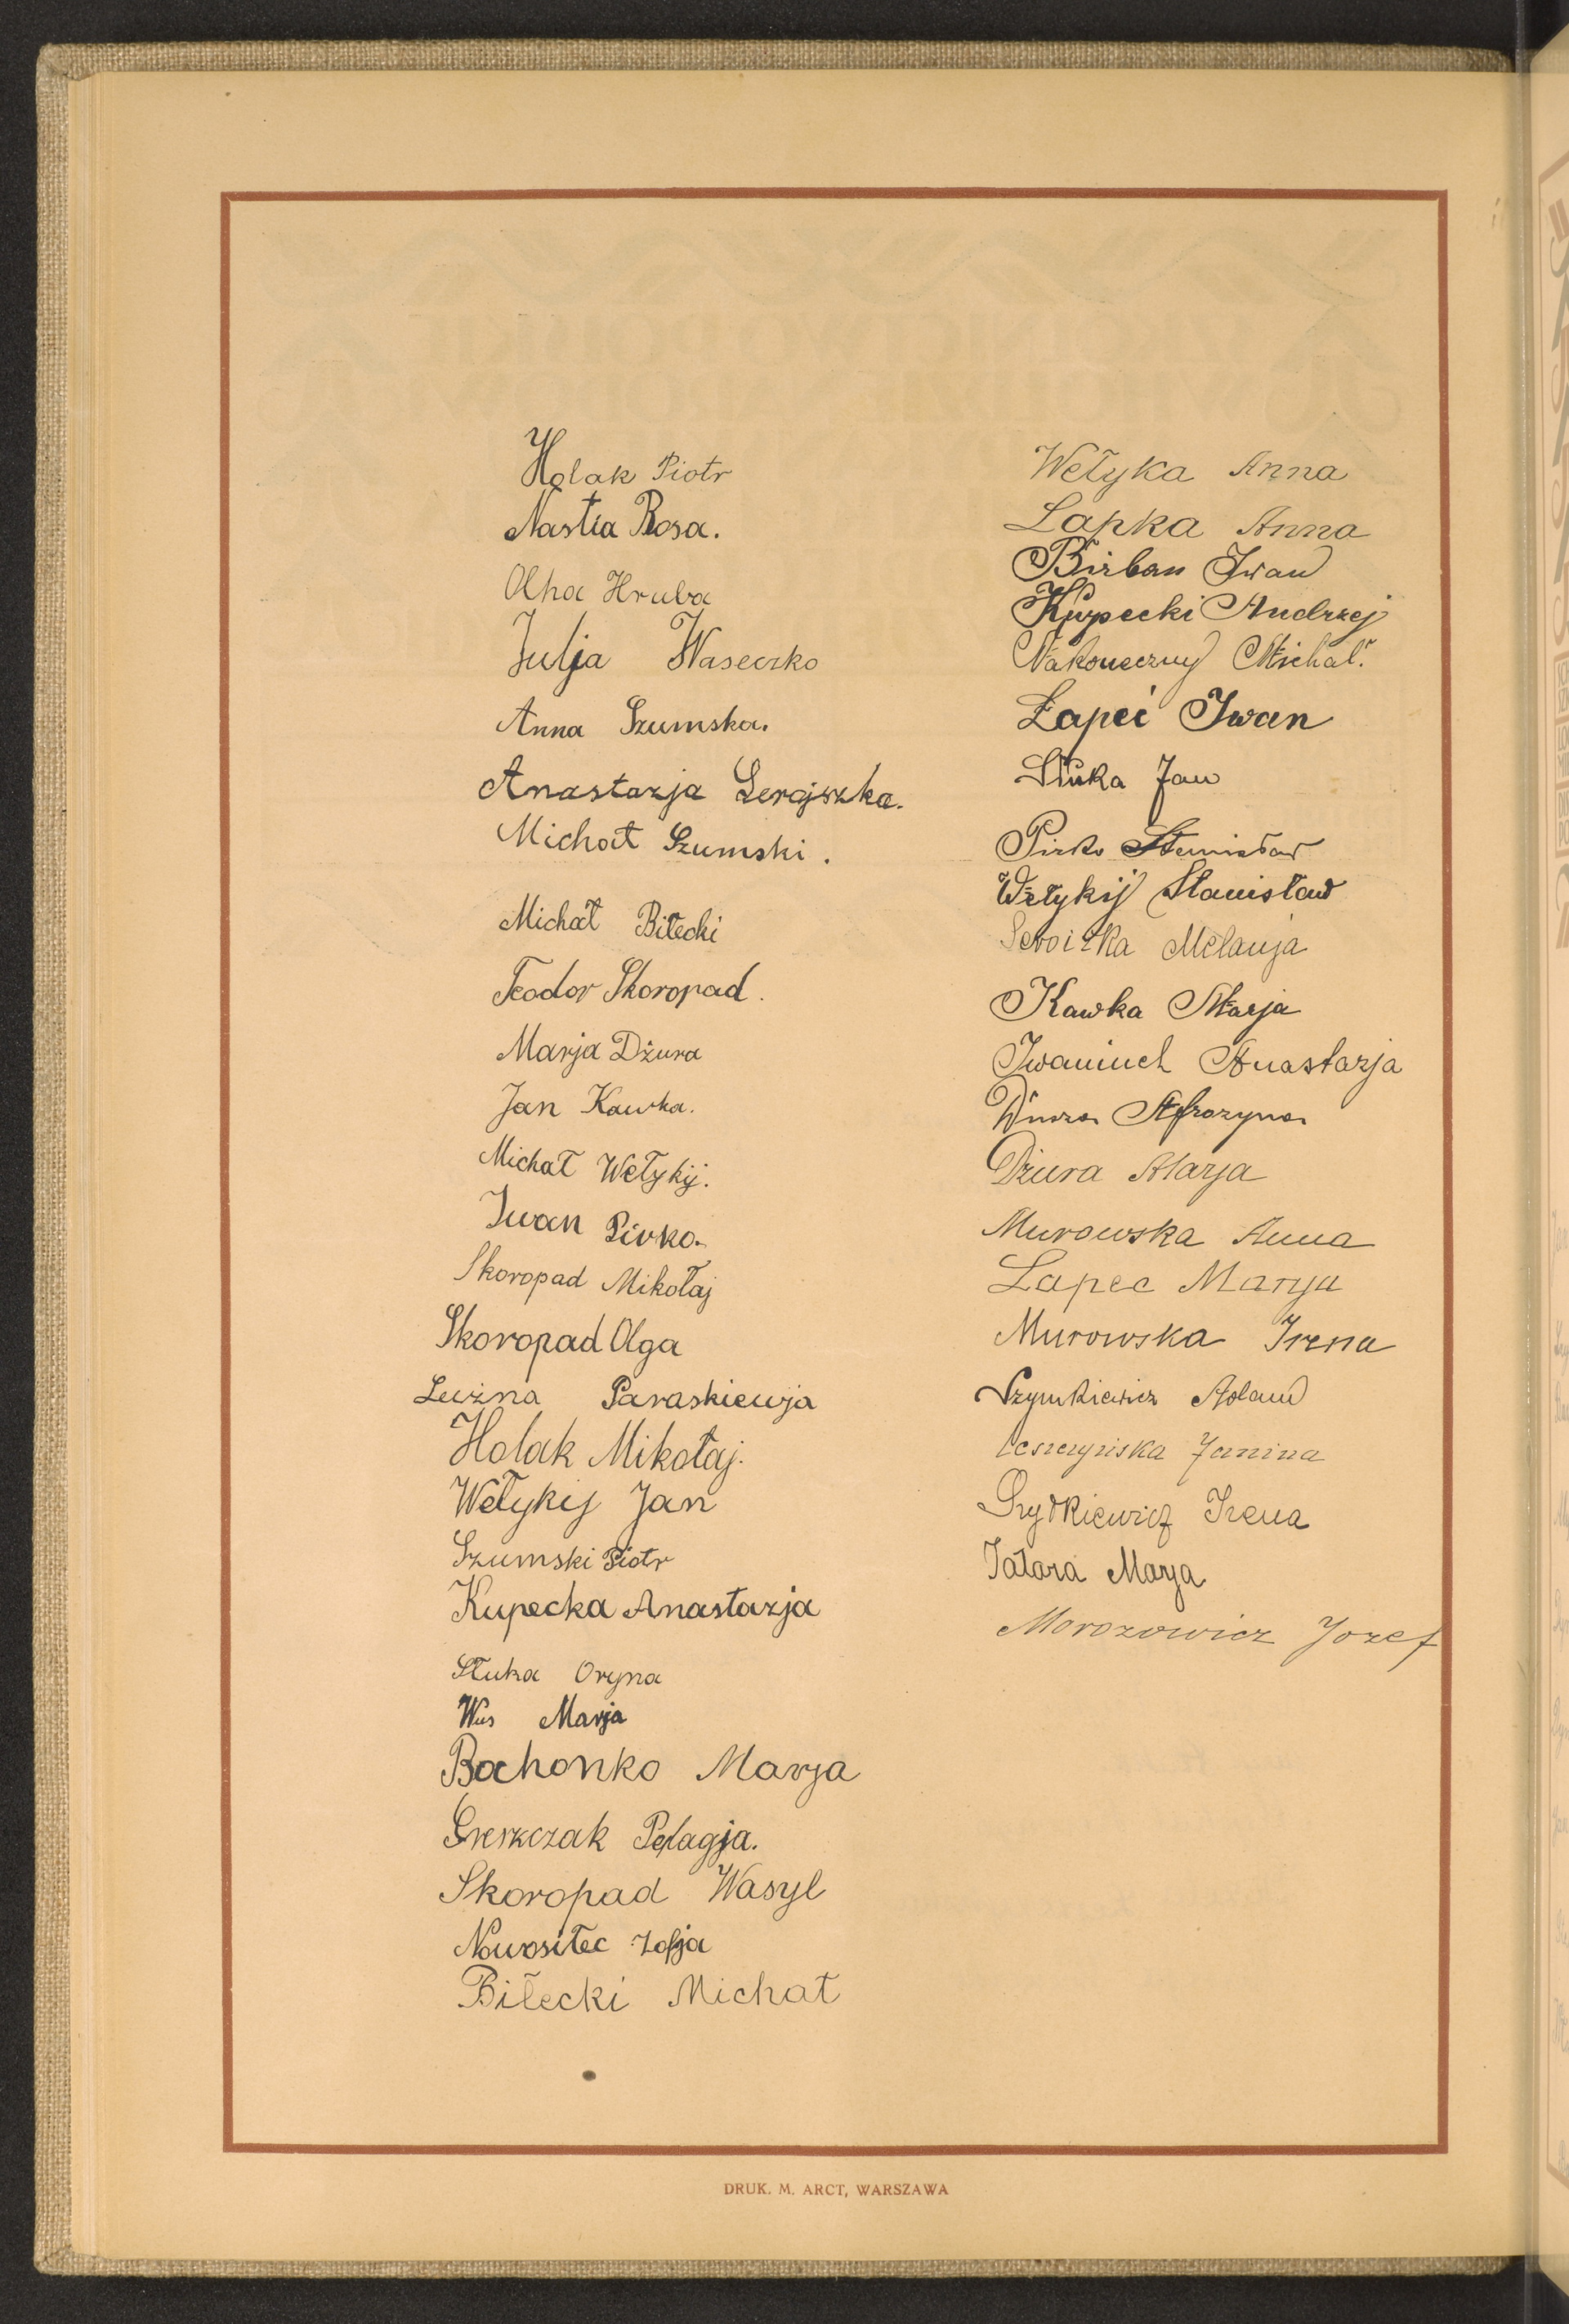 Holak Piotr
Nastia Rosa.
Olha Hruba
Julja Waseczko
Anna Szumska.
Anastazja Lerajszka.
Michał Szumski.
Michał Biłecki
Teodor Skoropad.
Marja Dżura
Jan Kawka.
Michał Wełykij.
Iwan Pirko
Skoropad Mikołaj
Skoropad Olga
Luźna Paraskiewja
Holak Mikołaj.
Wełykij Jan
Szumski Piotr
Kupecka Anastazja
Słuka Oryna
Wus Marja
Bochonko Marja
Greszczak Pelagja.
Skoropad Wasyl
Nowosilec Zofja
Biłecki Michał
Wełyka Anna
Łapka Anna
Birban Iwan
Kupecki Andrzej
Nakoneczny Michał.
Łapeć Iwan
Słuka Jan
Pirko Stanisław
Wełykij Stanisław
Melanja
Kawka Marja
Iwaniuch Anastazja
Dżura Marja
Murowska Anna
Lapec Marja
Murowska Irena
Szymkiewicz
Leszczyńska Janina
Irena
Tatara Marja
Morozowicz Jozef
DRUK. M. ARCT, WARSZAWA